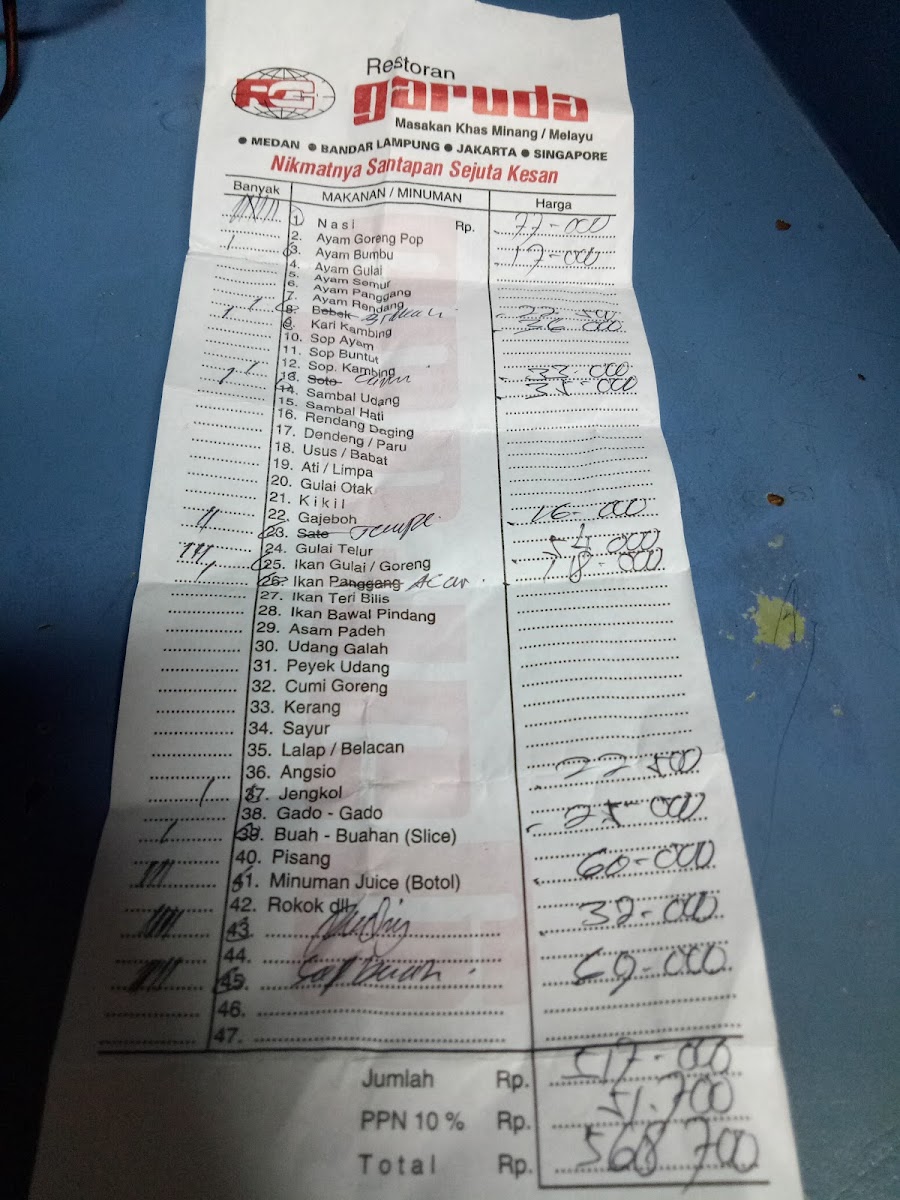 RG Restoran
garuda
Masakan Khas Minang / Melayu
● MEDAN ● BANDAR LAMPUNG ● JAKARTA ● SINGAPORE
Nikmatnya Santapan Sejuta Kesan
Banyak MAKANAN / MINUMAN Harga
1. Nasi Rp. 77-000
2. Ayam Goreng Pop
1 3. Ayam Bumbu 17-000
4. Ayam Gulai
5. Ayam Semur
6. Ayam Panggang
7. Ayam Rendang
1 8. Bebek 22-500
1 9. Kari Kambing 36-000
10. Sop Ayam
11. Sop Buntut
12. Sop. Kambing
1 13. Soto 33-000
1 14. Sambal Udang 35-000
15. Sambal Hati
16. Rendang Daging
17. Dendeng / Paru
18. Usus / Babat
19. Ati / Limpa
20. Gulai Otak
21. Kikil
22. Gajeboh
11 23. Sate Tempe 16-000
24. Gulai Telur
111 25. Ikan Gulai / Goreng 54-000
1 26. Ikan Panggang Acar 18-000
27. Ikan Teri Bilis
28. Ikan Bawal Pindang
29. Asam Padeh
30. Udang Galah
31. Peyek Udang
32. Cumi Goreng
33. Kerang
34. Sayur
35. Lalap / Belacan
36. Angsio
1 37. Jengkol 22-500
38. Gado - Gado
1 39. Buah - Buahan (Slice) 25-000
40. Pisang
111 41. Minuman Juice (Botol) 60-000
42. Rokok dll
43. 32-000
44.
45. 69-000
46.
47.
Jumlah Rp. 517-000
PPN 10 % Rp. 51.700
Total Rp. 568 700